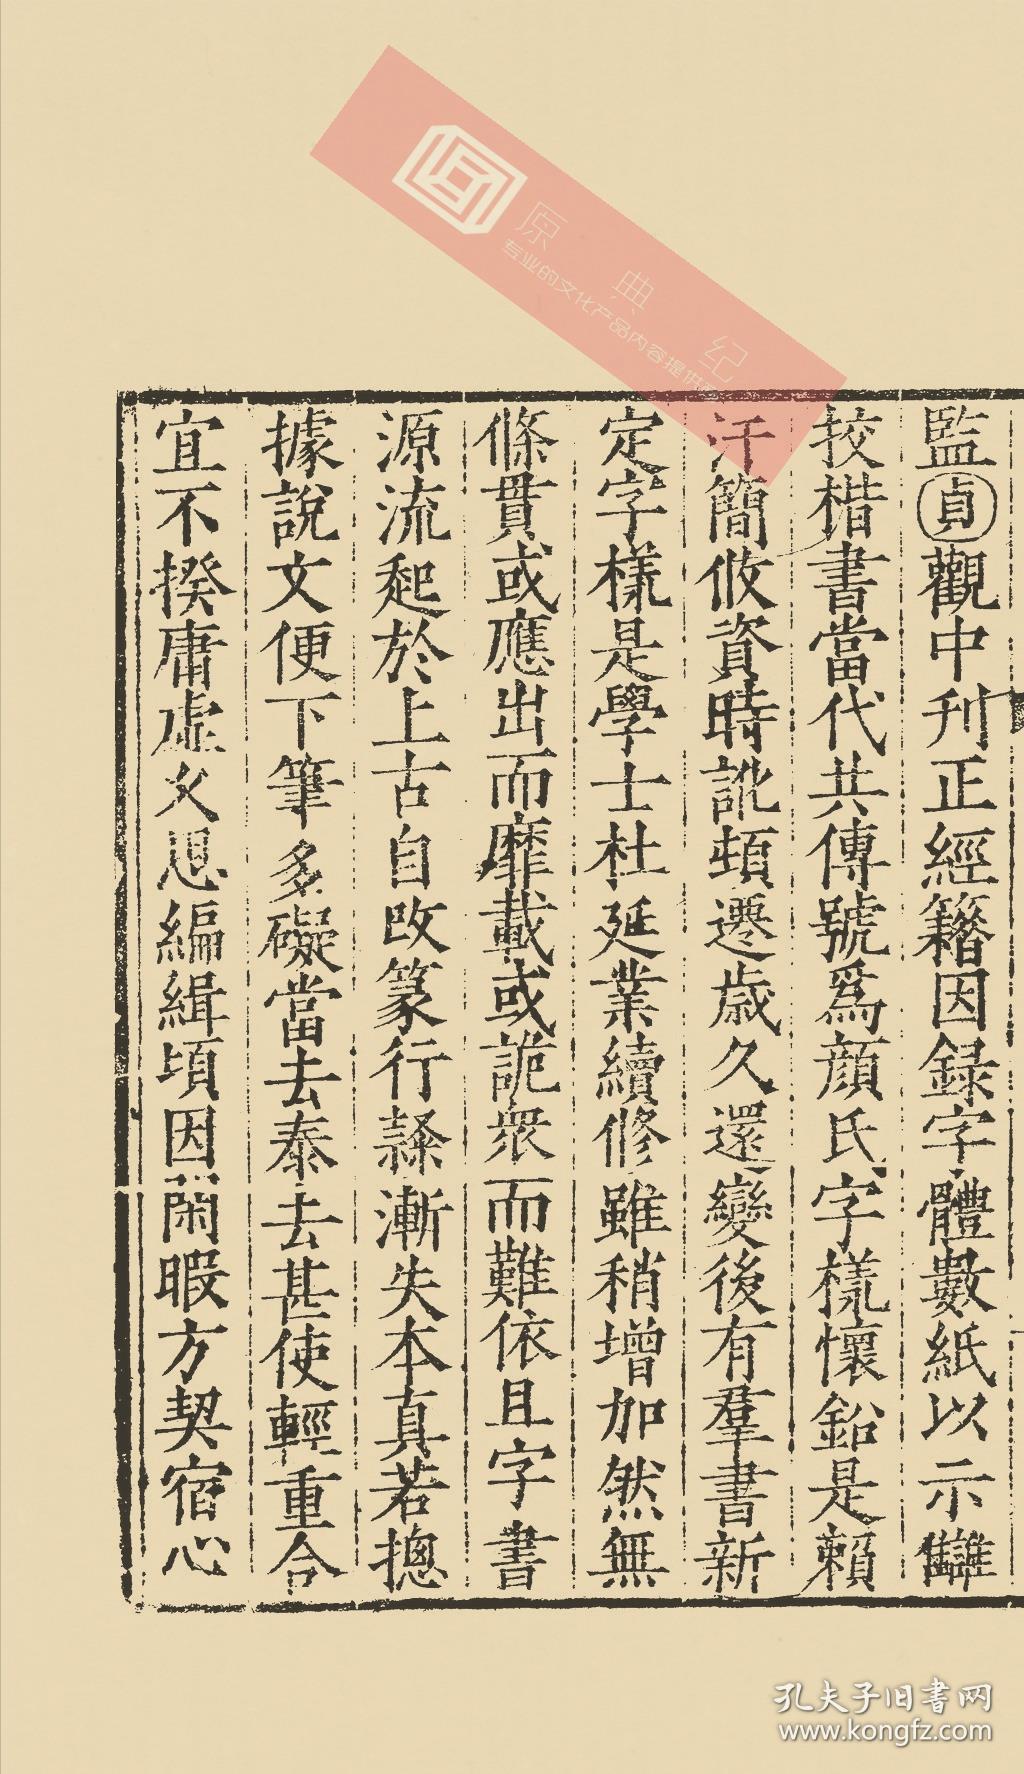 監貞觀中刋正經籍因録字體數紙以示讎
挍楷書當代共傳號爲顔氏字樣懷鉛是賴
汗簡攸資時訛頓遷歲久還變後有羣書新
定字樣是學士杜延業續修雖稍增加然無
條貫或應出而靡載或詭衆而難依且字書
源流起於上古自改篆行隸漸失本真若揔
據說文便下筆多礙當去泰去甚使輕重合
宜不揆庸虛久思編緝頃因閑暇方契宿心
原典纪
专业的文化产品内容提供商
孔夫子旧书网
www.kongfz.com